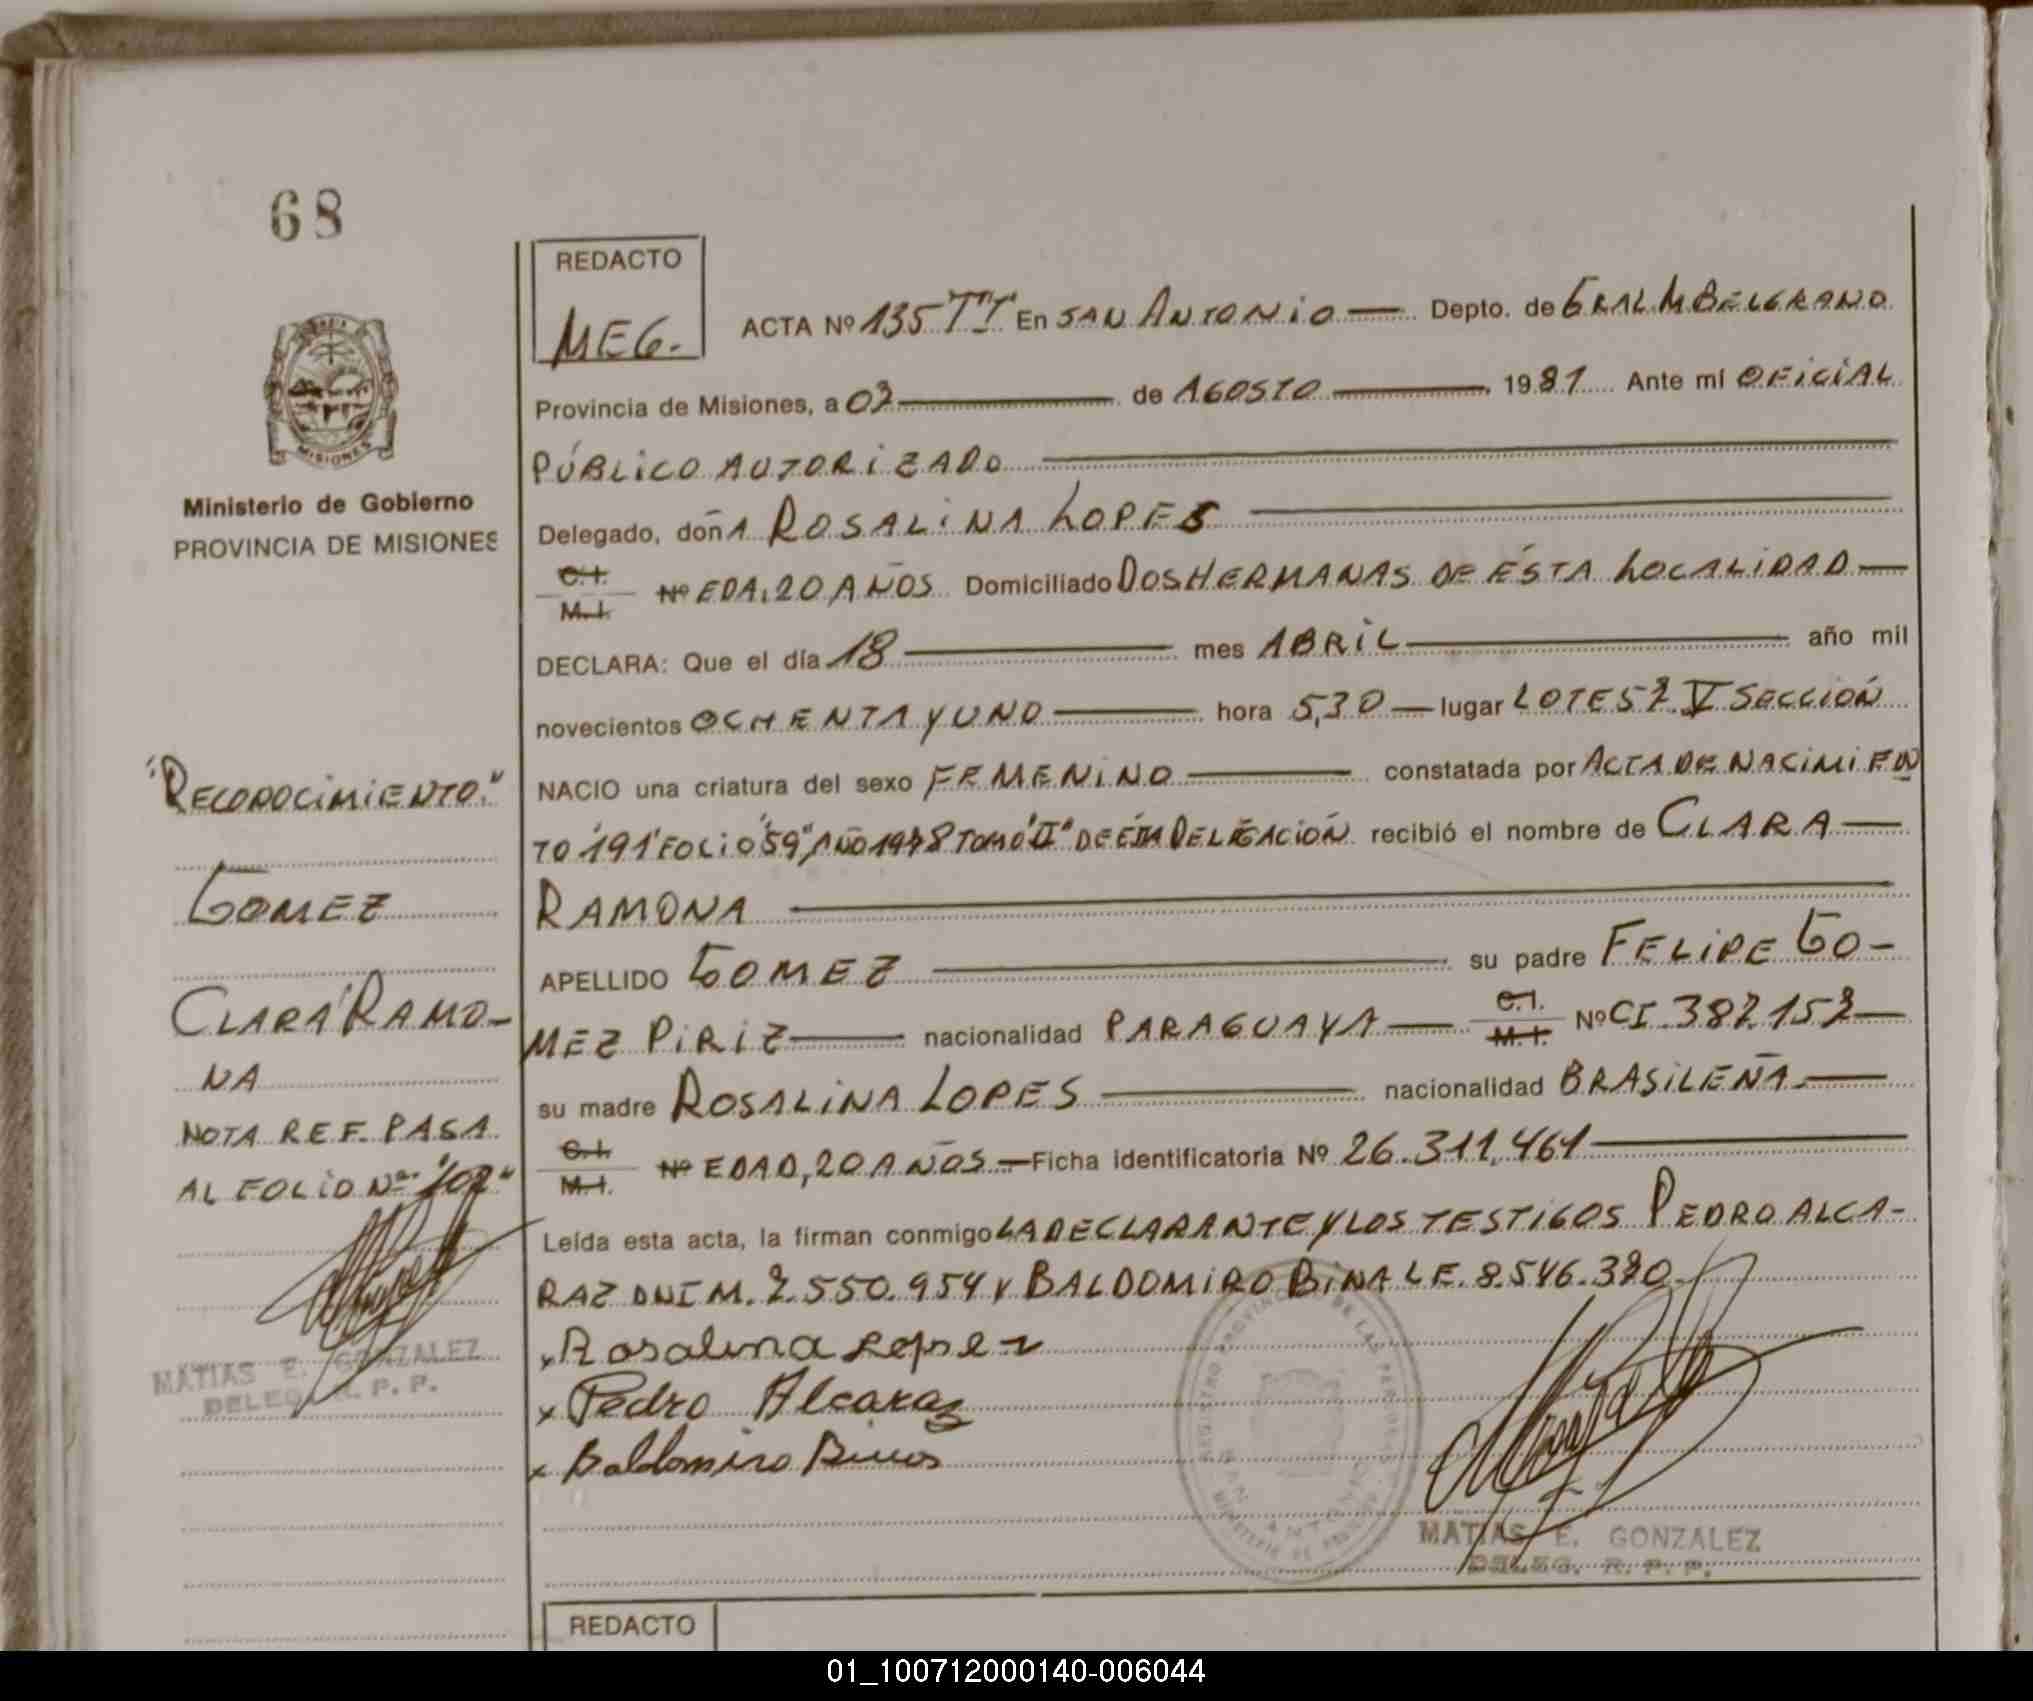 68
REDACTO
MEG.
MISIONES
Ministerio de Gobierno
PROVINCIA DE MISIONES
ACTA Nº 135 "TT" En SAN ANTONIO — Depto. de GRAL M BELGRANO
Provincia de Misiones, a 03 — de AGOSTO — 1981 Ante mí OFICIAL
PÚBLICO AUTORIZADO
Delegado, doñA ROSALINA LOPES
C.I. M.I. Nº EDA. 20 AÑOS Domiciliado DOS HERMANAS DE ÉSTA LOCALIDAD —
DECLARA: Que el día 18 — mes ABRIL — año mil
novecientos OCHENTA Y UNO — hora 5,30 — lugar LOTE 57 V SECCIÓN
NACIO una criatura del sexo FEMENINO — constatada por ACTA DE NACIMIEN
TO "191" FOLIO "59" AÑO TOMO "II" DE ÉSTA DELEGACIÓN recibió el nombre de CLARA —
RAMONA
APELLIDO GOMEZ — su padre FELIPE GO-
MEZ PIRIZ — nacionalidad PARAGUAYA — C.I. M.I. Nº CI. 387.157 —
su madre ROSALINA LOPES — nacionalidad BRASILEÑA. —
C.I. M.I. Nº EDAD, 20 AÑOS — Ficha identificatoria Nº 26.311.461 —
Leída esta acta, la firman conmigo LA DECLARANTE Y LOS TESTIGOS PEDRO ALCA-
RAZ DNI M. 7.550.954 Y BALDOMIRO BINA LE. 8.546.370
x Rosalina Lopez
x Pedro Alcaraz
x Baldomiro
MATIAS E. GONZALEZ
DELEG. R. P. P.
"RECONOCIMIENTO."
GOMEZ
CLARA RAMO-
NA
NOTA REF. PASA
AL FOLIO Nº "102"
MATIAS E. GONZALEZ
DELEG. R. P. P.
REDACTO
01_100712000140-006044